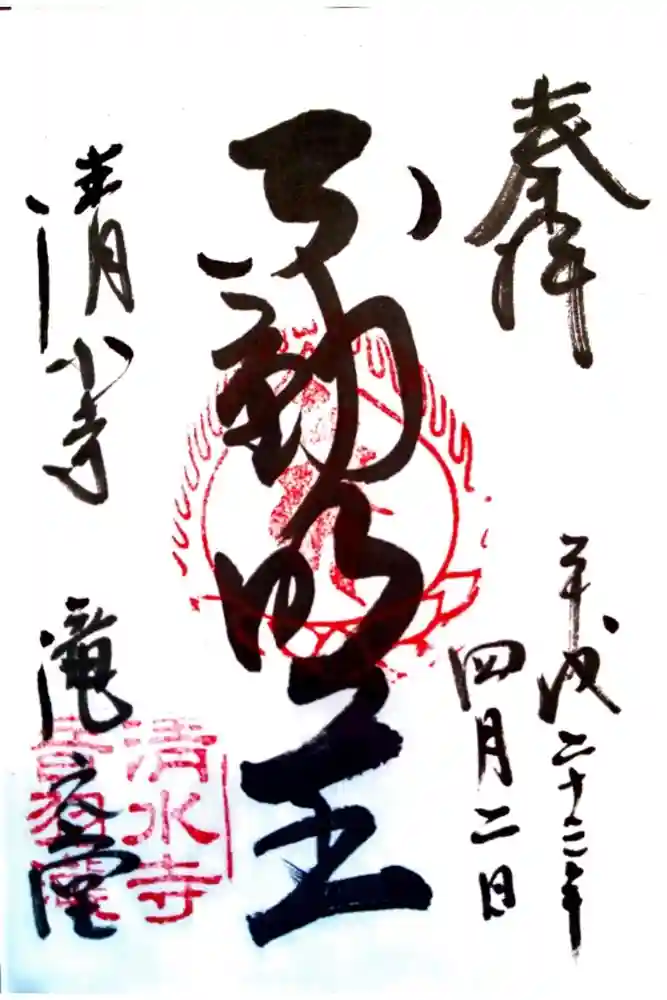 奉拝
平成二十三年
四月二日
不動明王
清水寺
滝之堂
清水寺
音羽